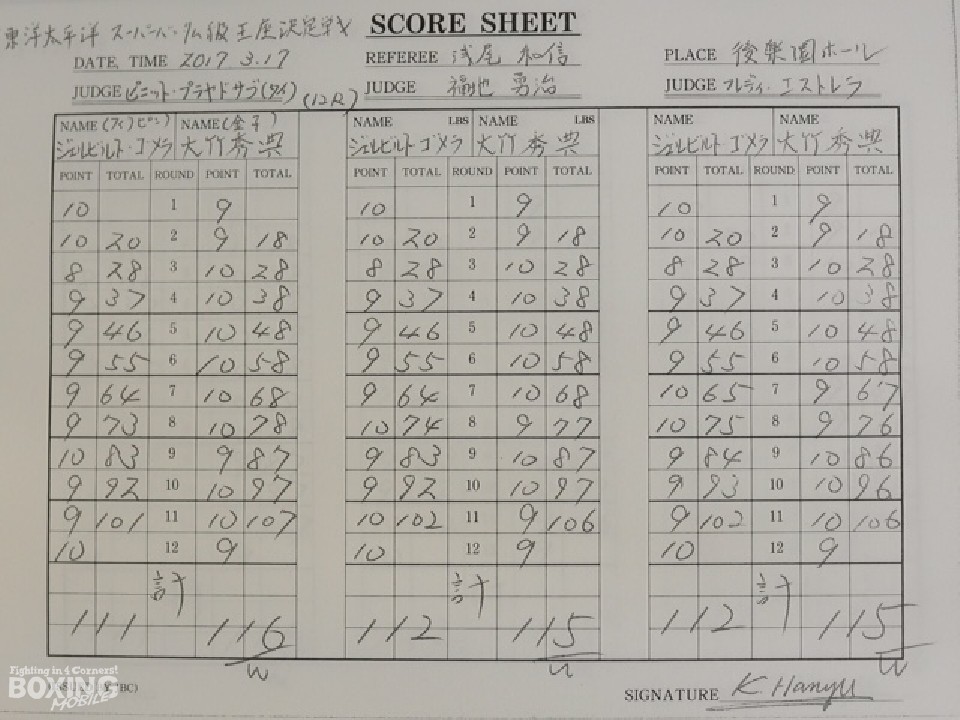 SCORE SHEET
東洋太平洋 スーパーバンタム級王座決定戦
DATE, TIME 2017 3.17
REFEREE 浅尾 和信
PLACE 後楽園ホール
JUDGE ピニット・プラヤドサブ(タイ)
(12R)
JUDGE 福地 勇治
JUDGE フレディ・エストレラ
NAME (フィリピン) NAME (金子) NAME LBS NAME LBS NAME NAME
ジェルビルト・ゴメラ 大竹秀典 ジェルビルト ゴメラ 大竹秀典 ジェルビルト ゴメラ 大竹秀典
POINT TOTAL ROUND POINT TOTAL POINT TOTAL ROUND POINT TOTAL POINT TOTAL ROUND POINT TOTAL
10 1 9 10 1 9 10 1 9
10 20 2 9 18 10 20 2 9 18 10 20 2 9 18
8 28 3 10 28 8 28 3 10 28 8 28 3 10 28
9 37 4 10 38 9 37 4 10 38 9 37 4 10 38
9 46 5 10 48 9 46 5 10 48 9 46 5 10 48
9 55 6 10 58 9 55 6 10 58 9 55 6 10 58
9 64 7 10 68 9 64 7 10 68 10 65 7 9 67
9 73 8 10 78 10 74 8 9 77 10 75 8 9 76
10 83 9 9 87 9 83 9 10 87 9 84 9 10 86
9 92 10 10 97 9 92 10 10 97 9 93 10 10 96
9 101 11 10 107 10 102 11 9 106 9 102 11 10 106
10 12 9 10 12 9 10 12 9
計 計 計
111 116 112 115 112 115
W W W
Fighting in 4 Corners!
BOXING
MOBILE
SIGNATURE K. Hanyu